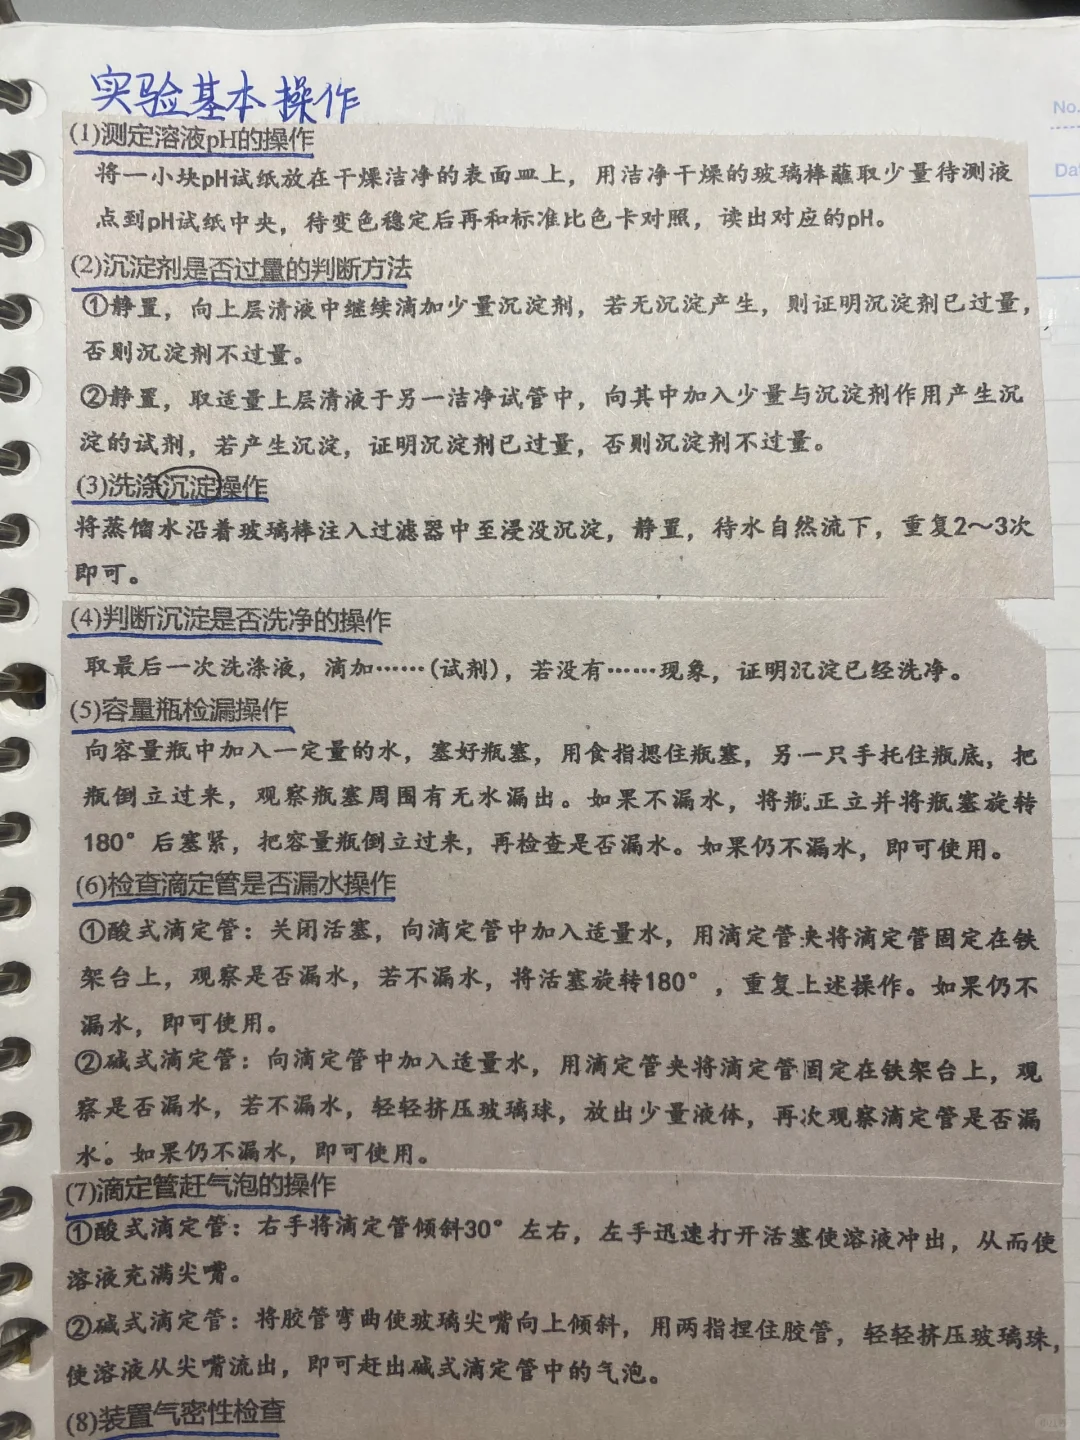 实验基本操作
No.
Da
(1)测定溶液pH的操作
将一小块pH试纸放在干燥洁净的表面皿上，用洁净干燥的玻璃棒蘸取少量待测液
点到pH试纸中央，待变色稳定后再和标准比色卡对照，读出对应的pH。
(2)沉淀剂是否过量的判断方法
①静置，向上层清液中继续滴加少量沉淀剂，若无沉淀产生，则证明沉淀剂已过量，
否则沉淀剂不过量。
②静置，取适量上层清液于另一洁净试管中，向其中加入少量与沉淀剂作用产生沉
淀的试剂，若产生沉淀，证明沉淀剂已过量，否则沉淀剂不过量。
(3)洗涤沉淀操作
将蒸馏水沿着玻璃棒注入过滤器中至浸没沉淀，静置，待水自然流下，重复2～3次
即可。
(4)判断沉淀是否洗净的操作
取最后一次洗涤液，滴加……(试剂)，若没有……现象，证明沉淀已经洗净。
(5)容量瓶检漏操作
向容量瓶中加入一定量的水，塞好瓶塞，用食指摁住瓶塞，另一只手托住瓶底，把
瓶倒立过来，观察瓶塞周围有无水漏出。如果不漏水，将瓶正立并将瓶塞旋转
180°后塞紧，把容量瓶倒立过来，再检查是否漏水。如果仍不漏水，即可使用。
(6)检查滴定管是否漏水操作
①酸式滴定管：关闭活塞，向滴定管中加入适量水，用滴定管夹将滴定管固定在铁
架台上，观察是否漏水，若不漏水，将活塞旋转180°，重复上述操作。如果仍不
漏水，即可使用。
②碱式滴定管：向滴定管中加入适量水，用滴定管夹将滴定管固定在铁架台上，观
察是否漏水，若不漏水，轻轻挤压玻璃球，放出少量液体，再次观察滴定管是否漏
水。如果仍不漏水，即可使用。
(7)滴定管赶气泡的操作
①酸式滴定管：右手将滴定管倾斜30°左右，左手迅速打开活塞使溶液冲出，从而使
溶液充满尖嘴。
②碱式滴定管：将胶管弯曲使玻璃尖嘴向上倾斜，用两指捏住胶管，轻轻挤压玻璃珠，
使溶液从尖嘴流出，即可赶出碱式滴定管中的气泡。
(8)装置气密性检查